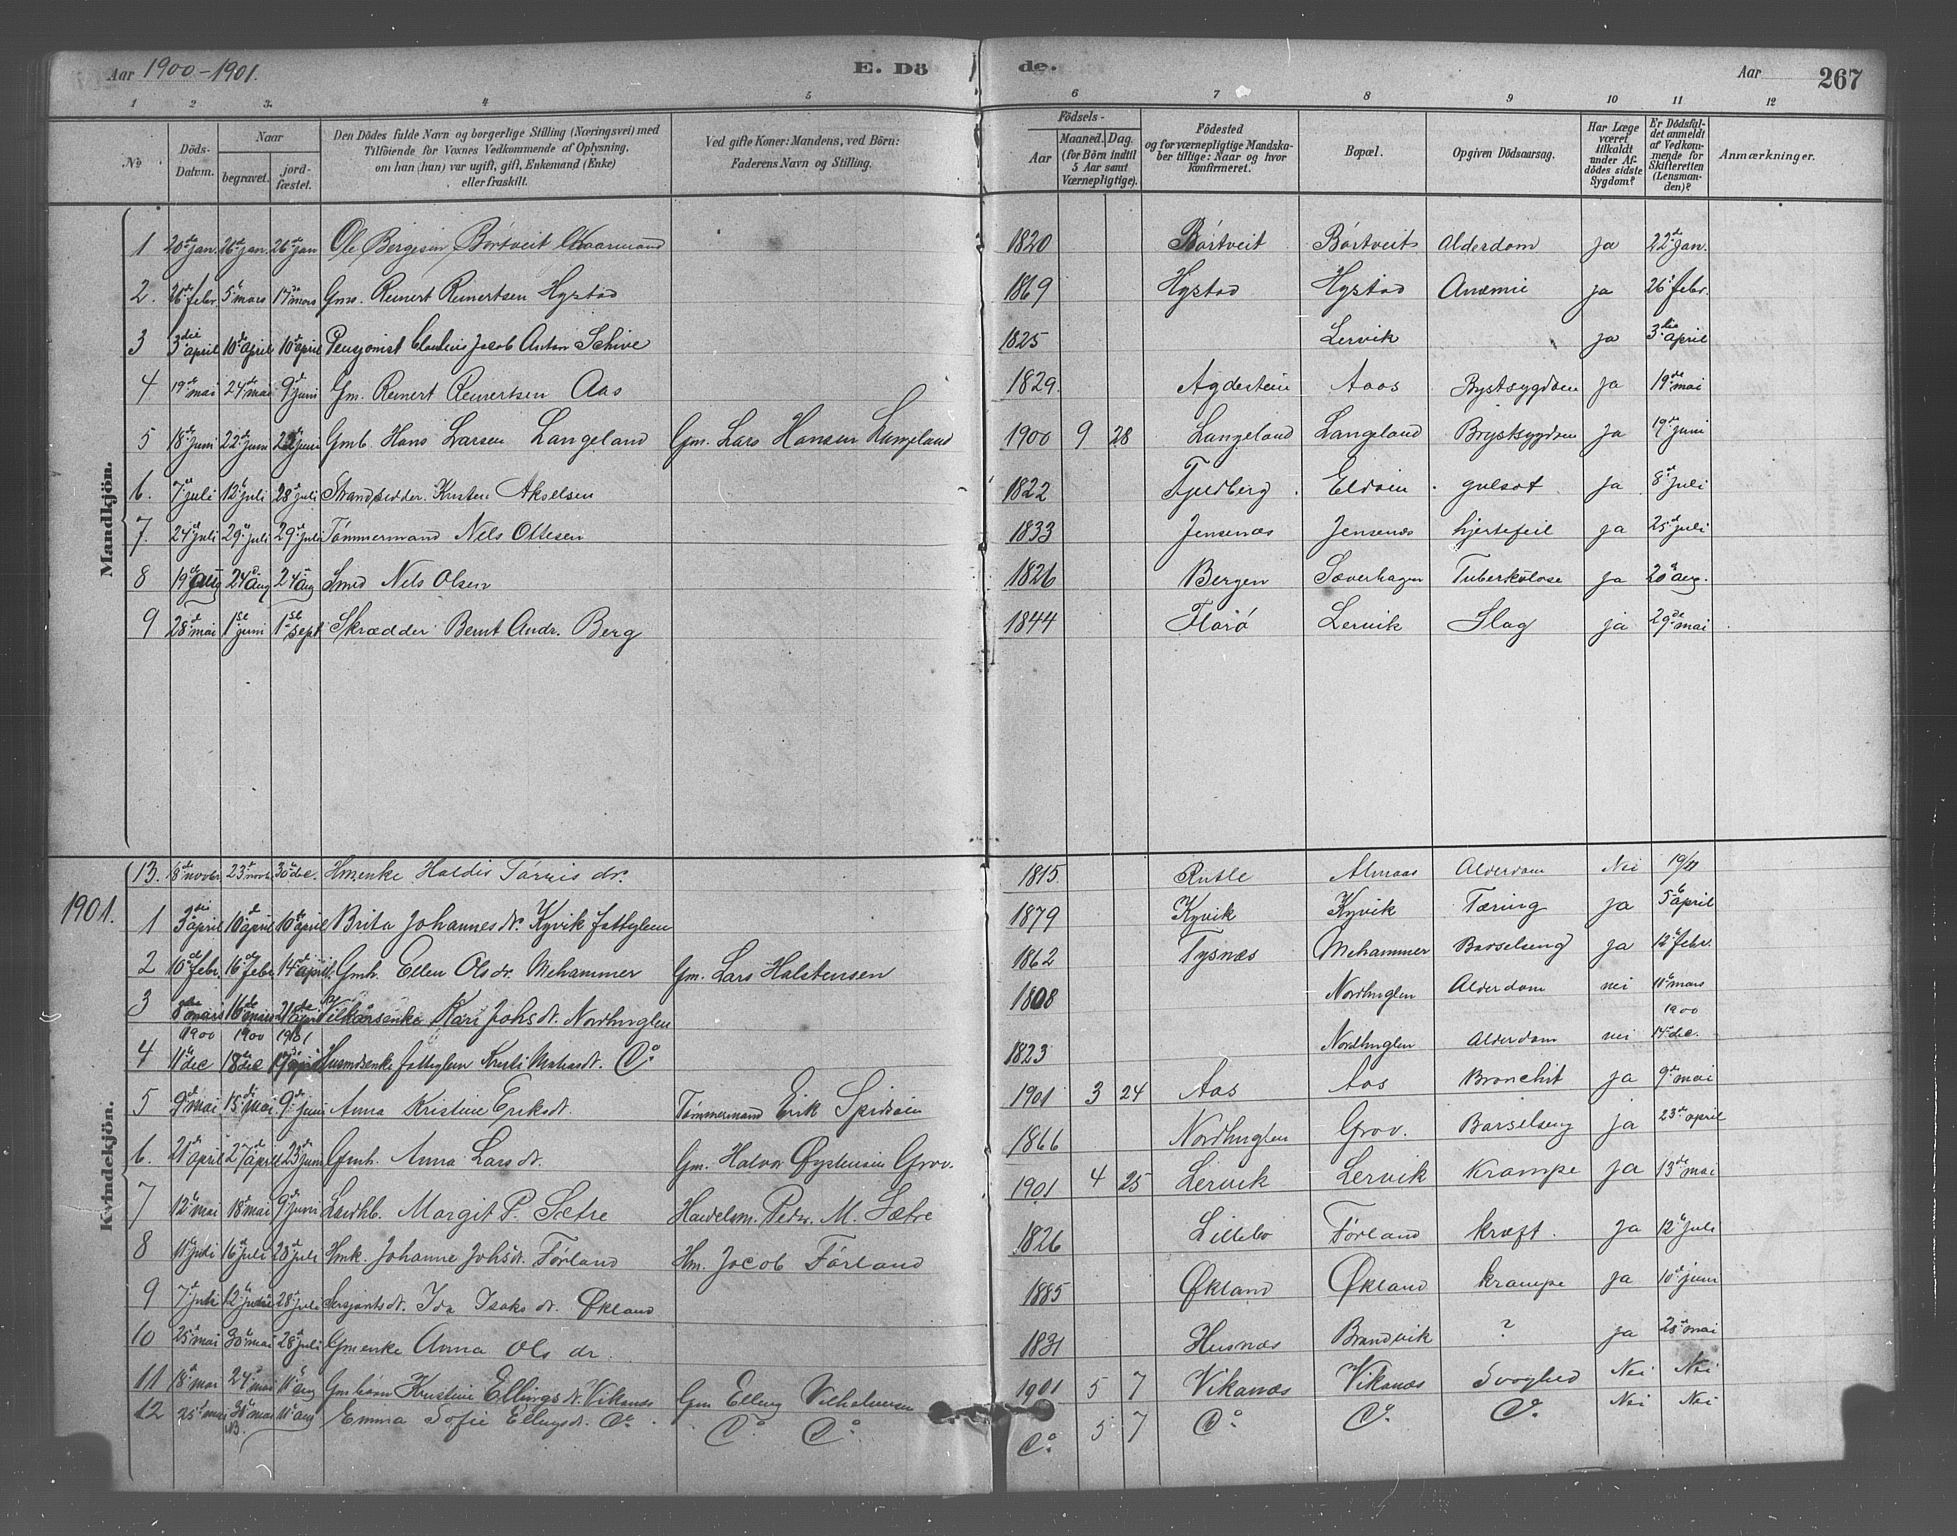 Aar 1900-1901. E. Dö de. Aar 267
1 2 3. 4 5 6 7 8 9 10 11 12
No
Döds-Datum.
Naar
begravet. jord-fæstet.
Den Dödes fulde Navn og borgerlige Stilling (Næringsvei) med
Tilföiende for Voxnes Vedkommende af Oplysning,
om han (hun) var ugift, gift, Enkemand (Enke)
eller fraskilt.
Ved gifte Koner: Mandens, ved Börn:
Faderens Navn og Stilling.
Födsels-
Aar
Maaned. Dag.
(for Börn indtil
5 Aar samt
Værnepligtige).
Födested
og for værnepligtige Mandska-
ber tillige: Naar og hvor
konfirmeret.
Bopæl.
Opgiven Dödsaarsag.
Har Læge
været
tilkaldt
under Af-
dödes sidste
Sygdom?
Er Dödsfal-
det anmeldt
af Vedkom-
mende for
Skifteretten
(Lensman-
den)?
Anmærkninger.
Mandkjön.
1 20de jan. 26de jan. 26de jan Ole Bergesen Börtveit Kaarmand 1820 Börtveit Börtveit Alderdom ja 22de jan.
2. 26de febr. 5te mars 17de mars Gms. Reinert Reinertsen Hystad 1869 Hystad Hystad Anæmie ja 26de febr.
3 3die april 10de april 10de april Pensjonist Jacob Anton Schive 1825 Lervik ja 3die april
4 19de mai 24de mai 9de juni Gm. Reinert Reinertsen Aas 1829. Agdestein Aaos Brystsygdom ja 19de mai
5 18de juni 22de juni juni Gmb. Hans Larsen Langeland Gm. Lars Hansen Langeland 1900 9 28 Langeland Langeland Brystsygdom ja 19de juni
6. 7de juli 12te juli 28de juli Strandsidder Kristen Akselsen 1822 Fjeldberg Eldöen gulsot ja 8de juli
7. 24de juli 29de juli 29de juli Tömmermand Nels Ottesen 1833 Jensenæs Jensenæs hjertefeil ja 25de juli
8 19de aug 24de aug 24de aug Smed Nels Olsen 1826 Bergen Sæverhagen Tuberkulose ja 20de aug.
9 28de mai 1ste juni 1ste sept Skrædder Bernt Andr. Berg 1844 Florö Lervik Slag ja 29de mai
13. 18de novbr. 23de novb. 30te dec. Hmenke Haldis dr. 1815 Rutle Almaas Alderdom Nei 19/11
1901.
Kvindekjön.
1 3die april 10de april 10de april Brita Johannesdr. Kyvik fattiglem 1879 Kyvik Kyvik Tæring ja 5te april
2 10de febr. 16de febr. 14de april Gmh. Ellen Olsdr. Mehammer Gm. Lars Halstensen 1862 Tysnæs Mehammer Barselseng ja 12te febr.
3 8de mars 16de mars 21de april Vilkårsenke Kari Johsdt. Nordhuglen 1808 Nordhuglen Alderdom nei 11te mars
1900 1900 1901 1900
4 11te dec 18de dec 17de april Husmdsenke fattiglem Kristi dt. Do. 1823 Nordhuglen Alderdom nei 14de dec.
5 9de mai 15de mai 9de juni Anna Kristine Eriksdt. Tömmermand Erik 1901 3 24 Aas Aas Bronchit ja 9de mai
6. 21de april 27de april 23de juni Gmh. Anna Larsdt. Gm. Halvor Öystensen Grov. 1866 Nordhuglen Grov. Barselseng ja 23de april
7 12te mai 18de mai 9de juni Landhb. Margit P. Sætre Handelsm. Peder M. Sætre 1901 4 25 Lervik Lervik Krampe ja 13de mai
8 11te juli 16de juli 28de juli Hmk. Johanne Johsdt. Förland Hm. Jacob Förland 1826 Lillebö Förland kræft. ja 12te juli
9 7de 12te 28de juli Sersjantsdt. Ida Isaksdt. Ökland 1885 Ökland Ökland krampe ja 10de juni
10 25de mai 30te mai 28de juli Gmenke Anna Olsdr. 1831 Husnæs Brandvik ? ja 28de mai
11 18de mai 24de mai 11te aug Gmbarn Kristine Ellingsdt. Vikanæs Gm Elling Vilhelmsen 1901 5 7 Vikanæs Vikanæs Svaghed Nei Nei
12 25de mai 30te mai 11te aug Emma Sofie Ellingsdt. Do. Do. Do. Do. 5 7 Do. Do. Do. Nei Nei
NB.